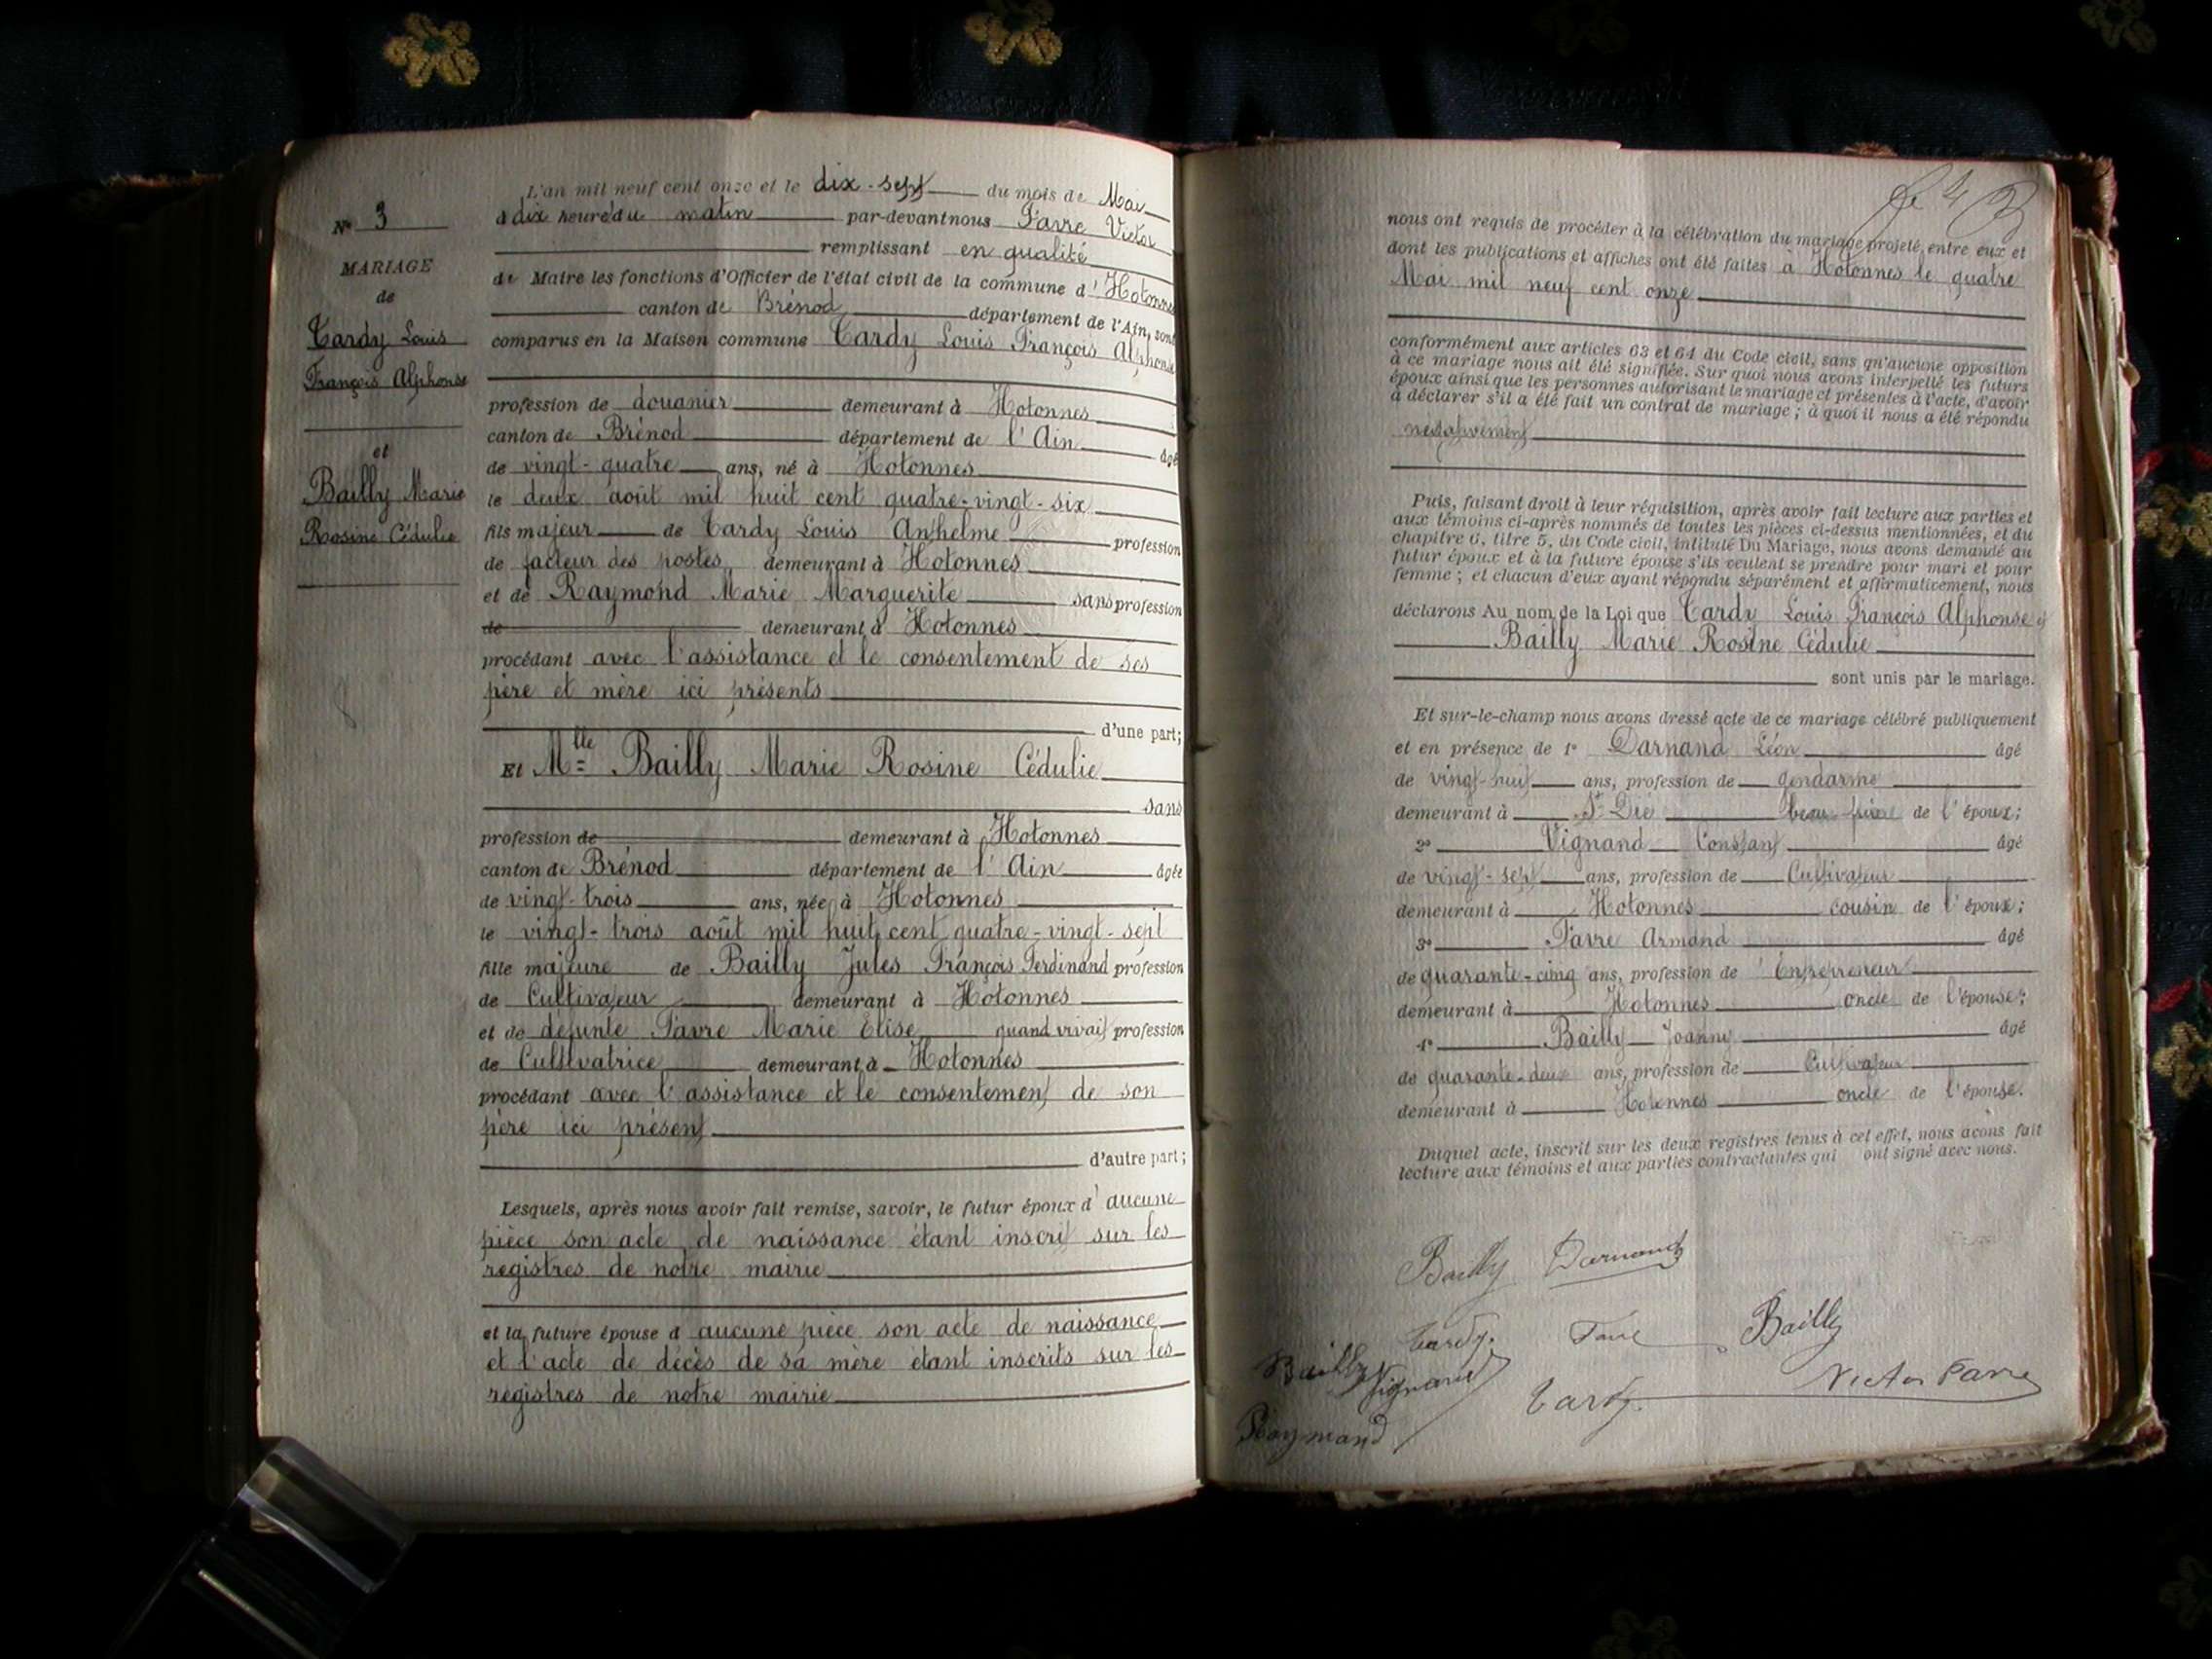 N° 3
MARIAGE
de
Tardy Louis
François Alphonse
et
Bailly Marie
Rosine Cédulie
L'an mil neuf cent onze et le dix-sept du mois de Mai
à dix heure du matin par-devant nous Favre Victor
remplissant en qualité
de Maire les fonctions d'Officier de l'état civil de la commune d'Hotonnes
canton de Brénod département de l'Ain, sont
comparus en la Maison commune Tardy Louis François Alphonse
profession de douanier demeurant à Hotonnes
canton de Brénod département de l'Ain âgé
de vingt-quatre ans, né à Hotonnes
le deux août mil huit cent quatre-vingt-six
fils majeur de Tardy Louis Anthelme profession
de facteur des postes demeurant à Hotonnes
et de Raymond Marie Marguerite sans profession
de demeurant à Hotonnes
procédant avec l'assistance et le consentement de ses
père et mère ici présents
d'une part;
Et Mlle Bailly Marie Rosine Cédulie
sans
profession de demeurant à Hotonnes
canton de Brénod département de l'Ain âgée
de vingt-trois ans, née à Hotonnes
le vingt-trois août mil huit cent quatre-vingt-sept
fille majeure de Bailly Jules François Ferdinand profession
de Cultivateur demeurant à Hotonnes
et de défunte Favre Marie Elise quand vivait profession
de Cultivatrice demeurant à Hotonnes
procédant avec l'assistance et le consentement de son
père ici présent
d'autre part;
Lesquels, après nous avoir fait remise, savoir, le futur époux d'aucune
pièce son acte de naissance étant inscrit sur les
registres de notre mairie
et la future épouse d aucune pièce son acte de naissance
et l'acte de décès de sa mère étant inscrits sur les
registres de notre mairie
nous ont requis de procéder à la célébration du mariage projeté entre eux et
dont les publications et affiches ont été faites à Hotonnes le quatre
Mai mil neuf cent onze
conformément aux articles 63 et 64 du Code civil, sans qu'aucune opposition
à ce mariage nous ait été signifiée. Sur quoi nous avons interpellé les futurs
époux ainsi que les personnes autorisant le mariage et présentes à l'acte, d'avoir
à déclarer s'il a été fait un contrat de mariage; à quoi il nous a été répondu
négativement
Puis, faisant droit à leur réquisition, après avoir fait lecture aux parties et
aux témoins ci-après nommés de toutes les pièces ci-dessus mentionnées, et du
chapitre 6, titre 5, du Code civil, intitulé Du Mariage, nous avons demandé au
futur époux et à la future épouse s'ils veulent se prendre pour mari et pour
femme; et chacun d'eux ayant répondu séparément et affirmativement, nous
déclarons Au nom de la Loi que Tardy Louis François Alphonse et
Bailly Marie Rosine Cédulie
sont unis par le mariage.
Et sur-le-champ nous avons dressé acte de ce mariage célébré publiquement
et en présence de 1° Darnand Léon âgé
de vingt-huit ans, profession de gendarme
demeurant à St Dié beau frère de l'époux;
2° Vignand Constant âgé
de vingt-sept ans, profession de Cultivateur
demeurant à Hotonnes cousin de l'époux;
3° Favre Armand âgé
de quarante-cinq ans, profession de Entrepreneur
demeurant à Hotonnes oncle de l'épouse;
4° Bailly Joanny âgé
de quarante-deux ans, profession de Cultivateur
demeurant à Hotonnes oncle de l'épouse.
Duquel acte, inscrit sur les deux registres tenus à cet effet, nous avons fait
lecture aux témoins et aux parties contractantes qui ont signé avec nous.
Bailly Darnand
Tardy. Favre Bailly
Bailly Vignand Tardy. Victor Favre
Raymond